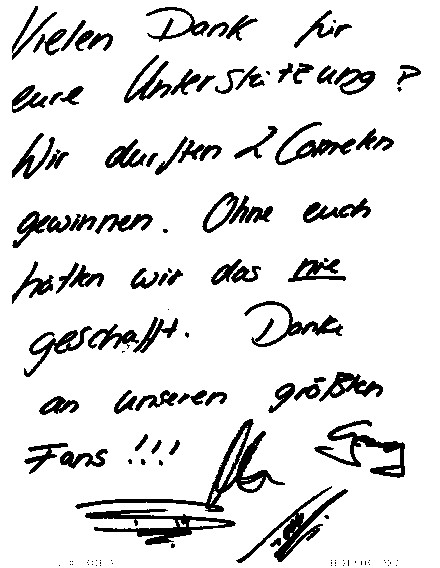 Vielen Dank für
eure Unterstützung?
Wir durften 2 Cometen
gewinnen. Ohne euch
hätten wir das nie
geschafft. Danke
an unseren größten
Fans !!!